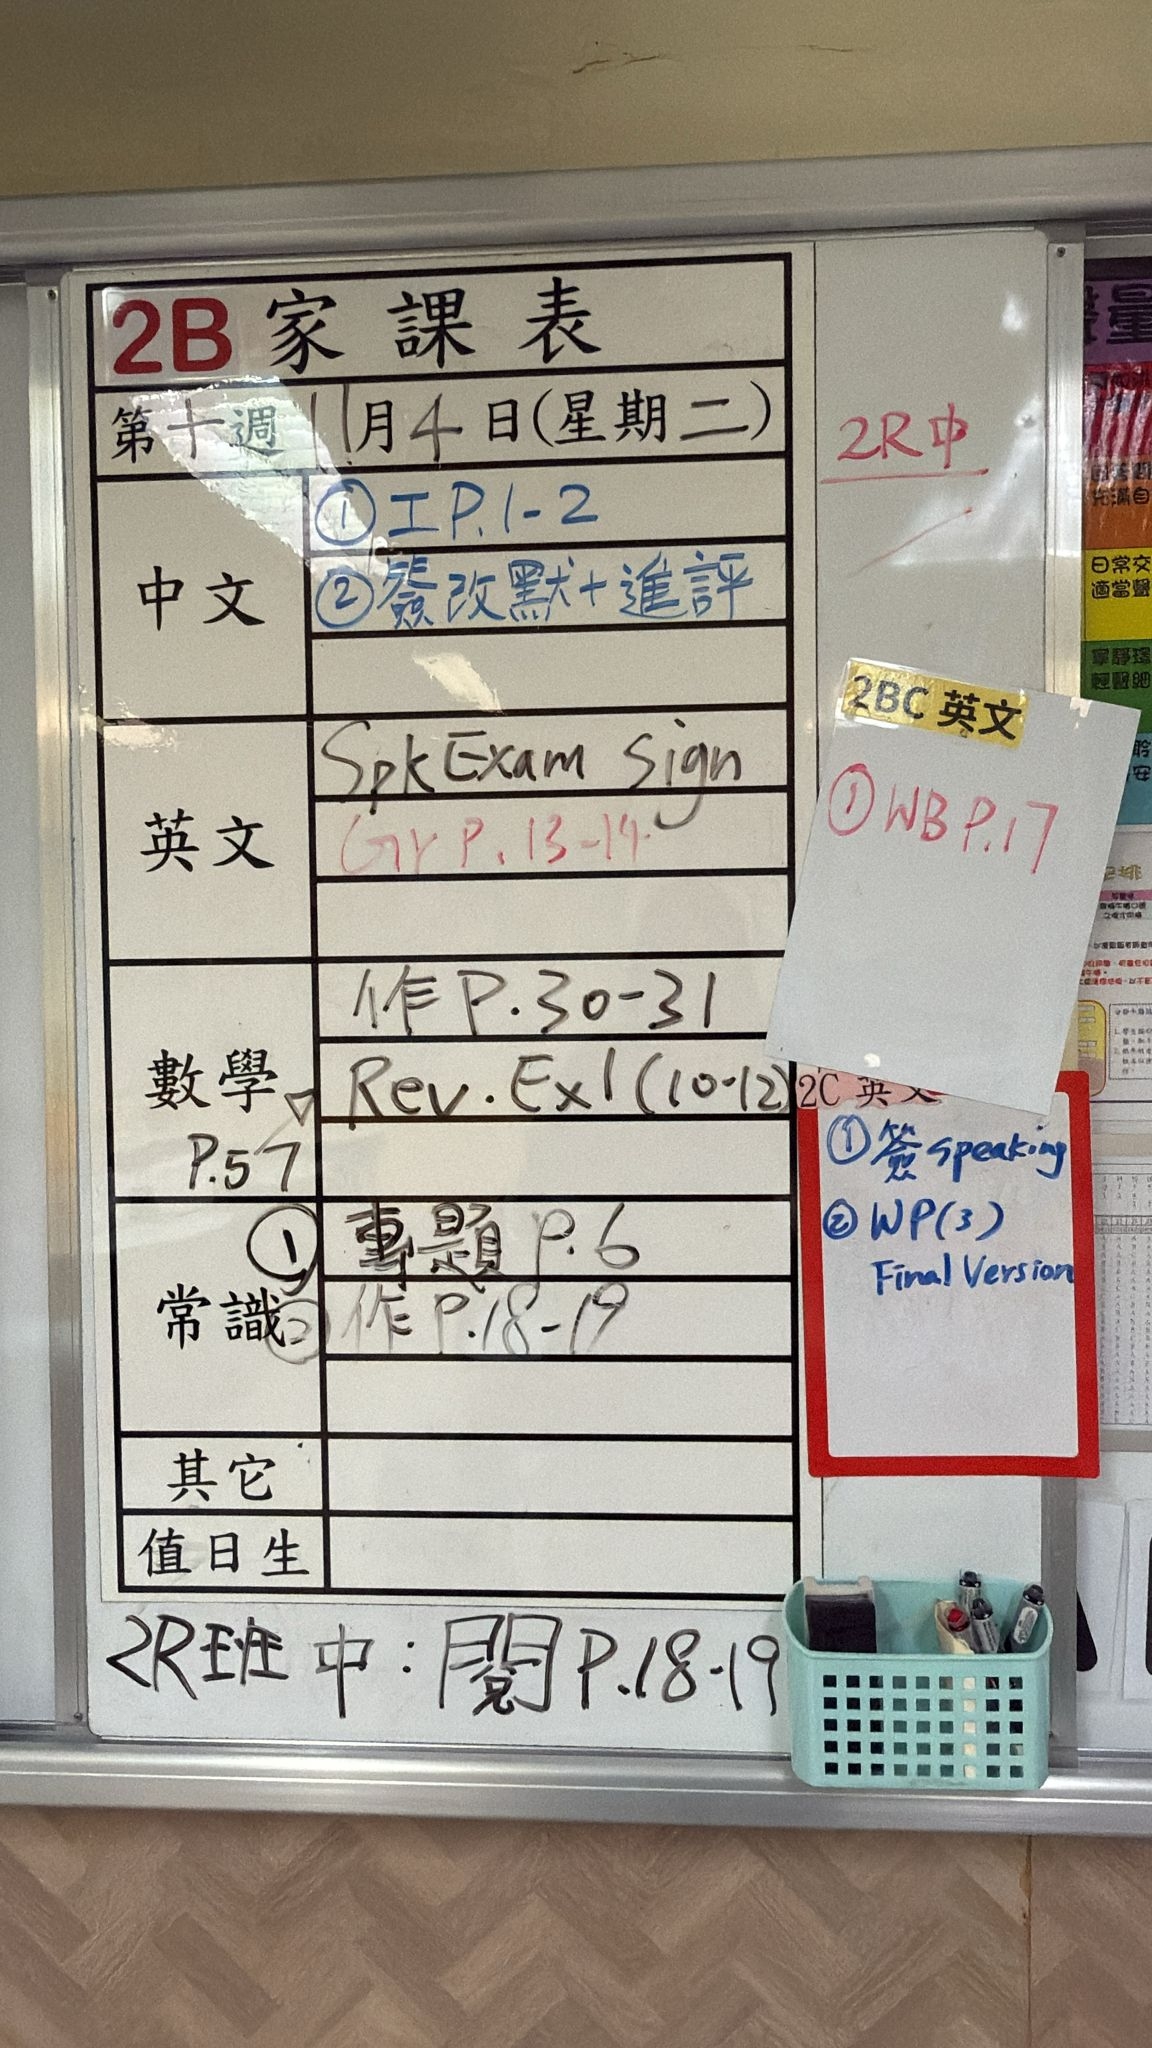 2B 家課表
第十週 11月4日(星期二)
中文
①工P.1-2
②簽改默+進評
英文
Spk Exam sign
Gr P.13-14
數學
P.57
作P.30-31
Rev. Ex1(10-12)
常識
① 專題P.6
② 作P.18-19
其它
值日生
2R班中:閱P.18-19
2R中
2BC 英文
①WB P.17
2C 英文
①簽speaking
②WP(3)
Final Version
日常交
適當聲
寧靜環